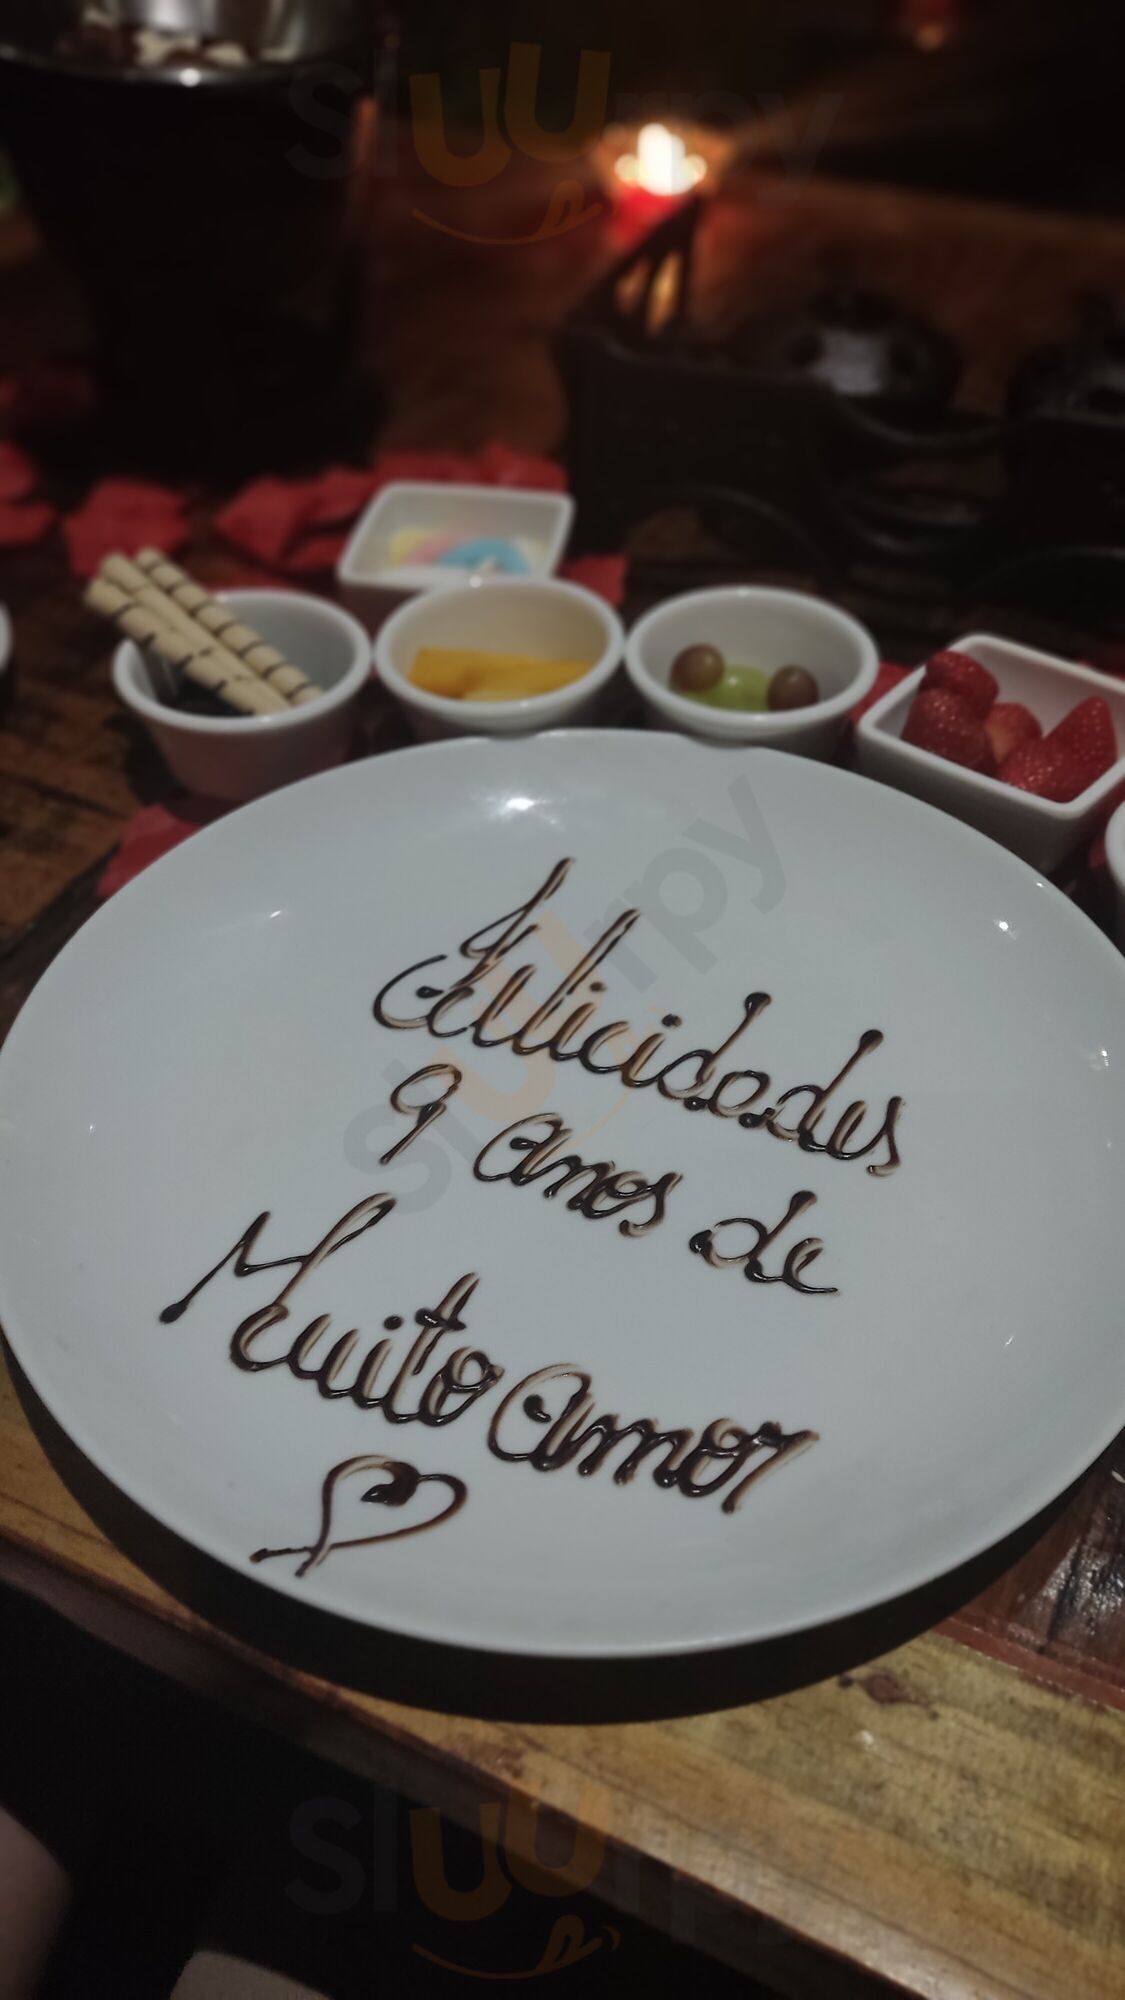 sluurpy
Felicidades
9 anos de
Muito amor
sluurpy
sluurpy